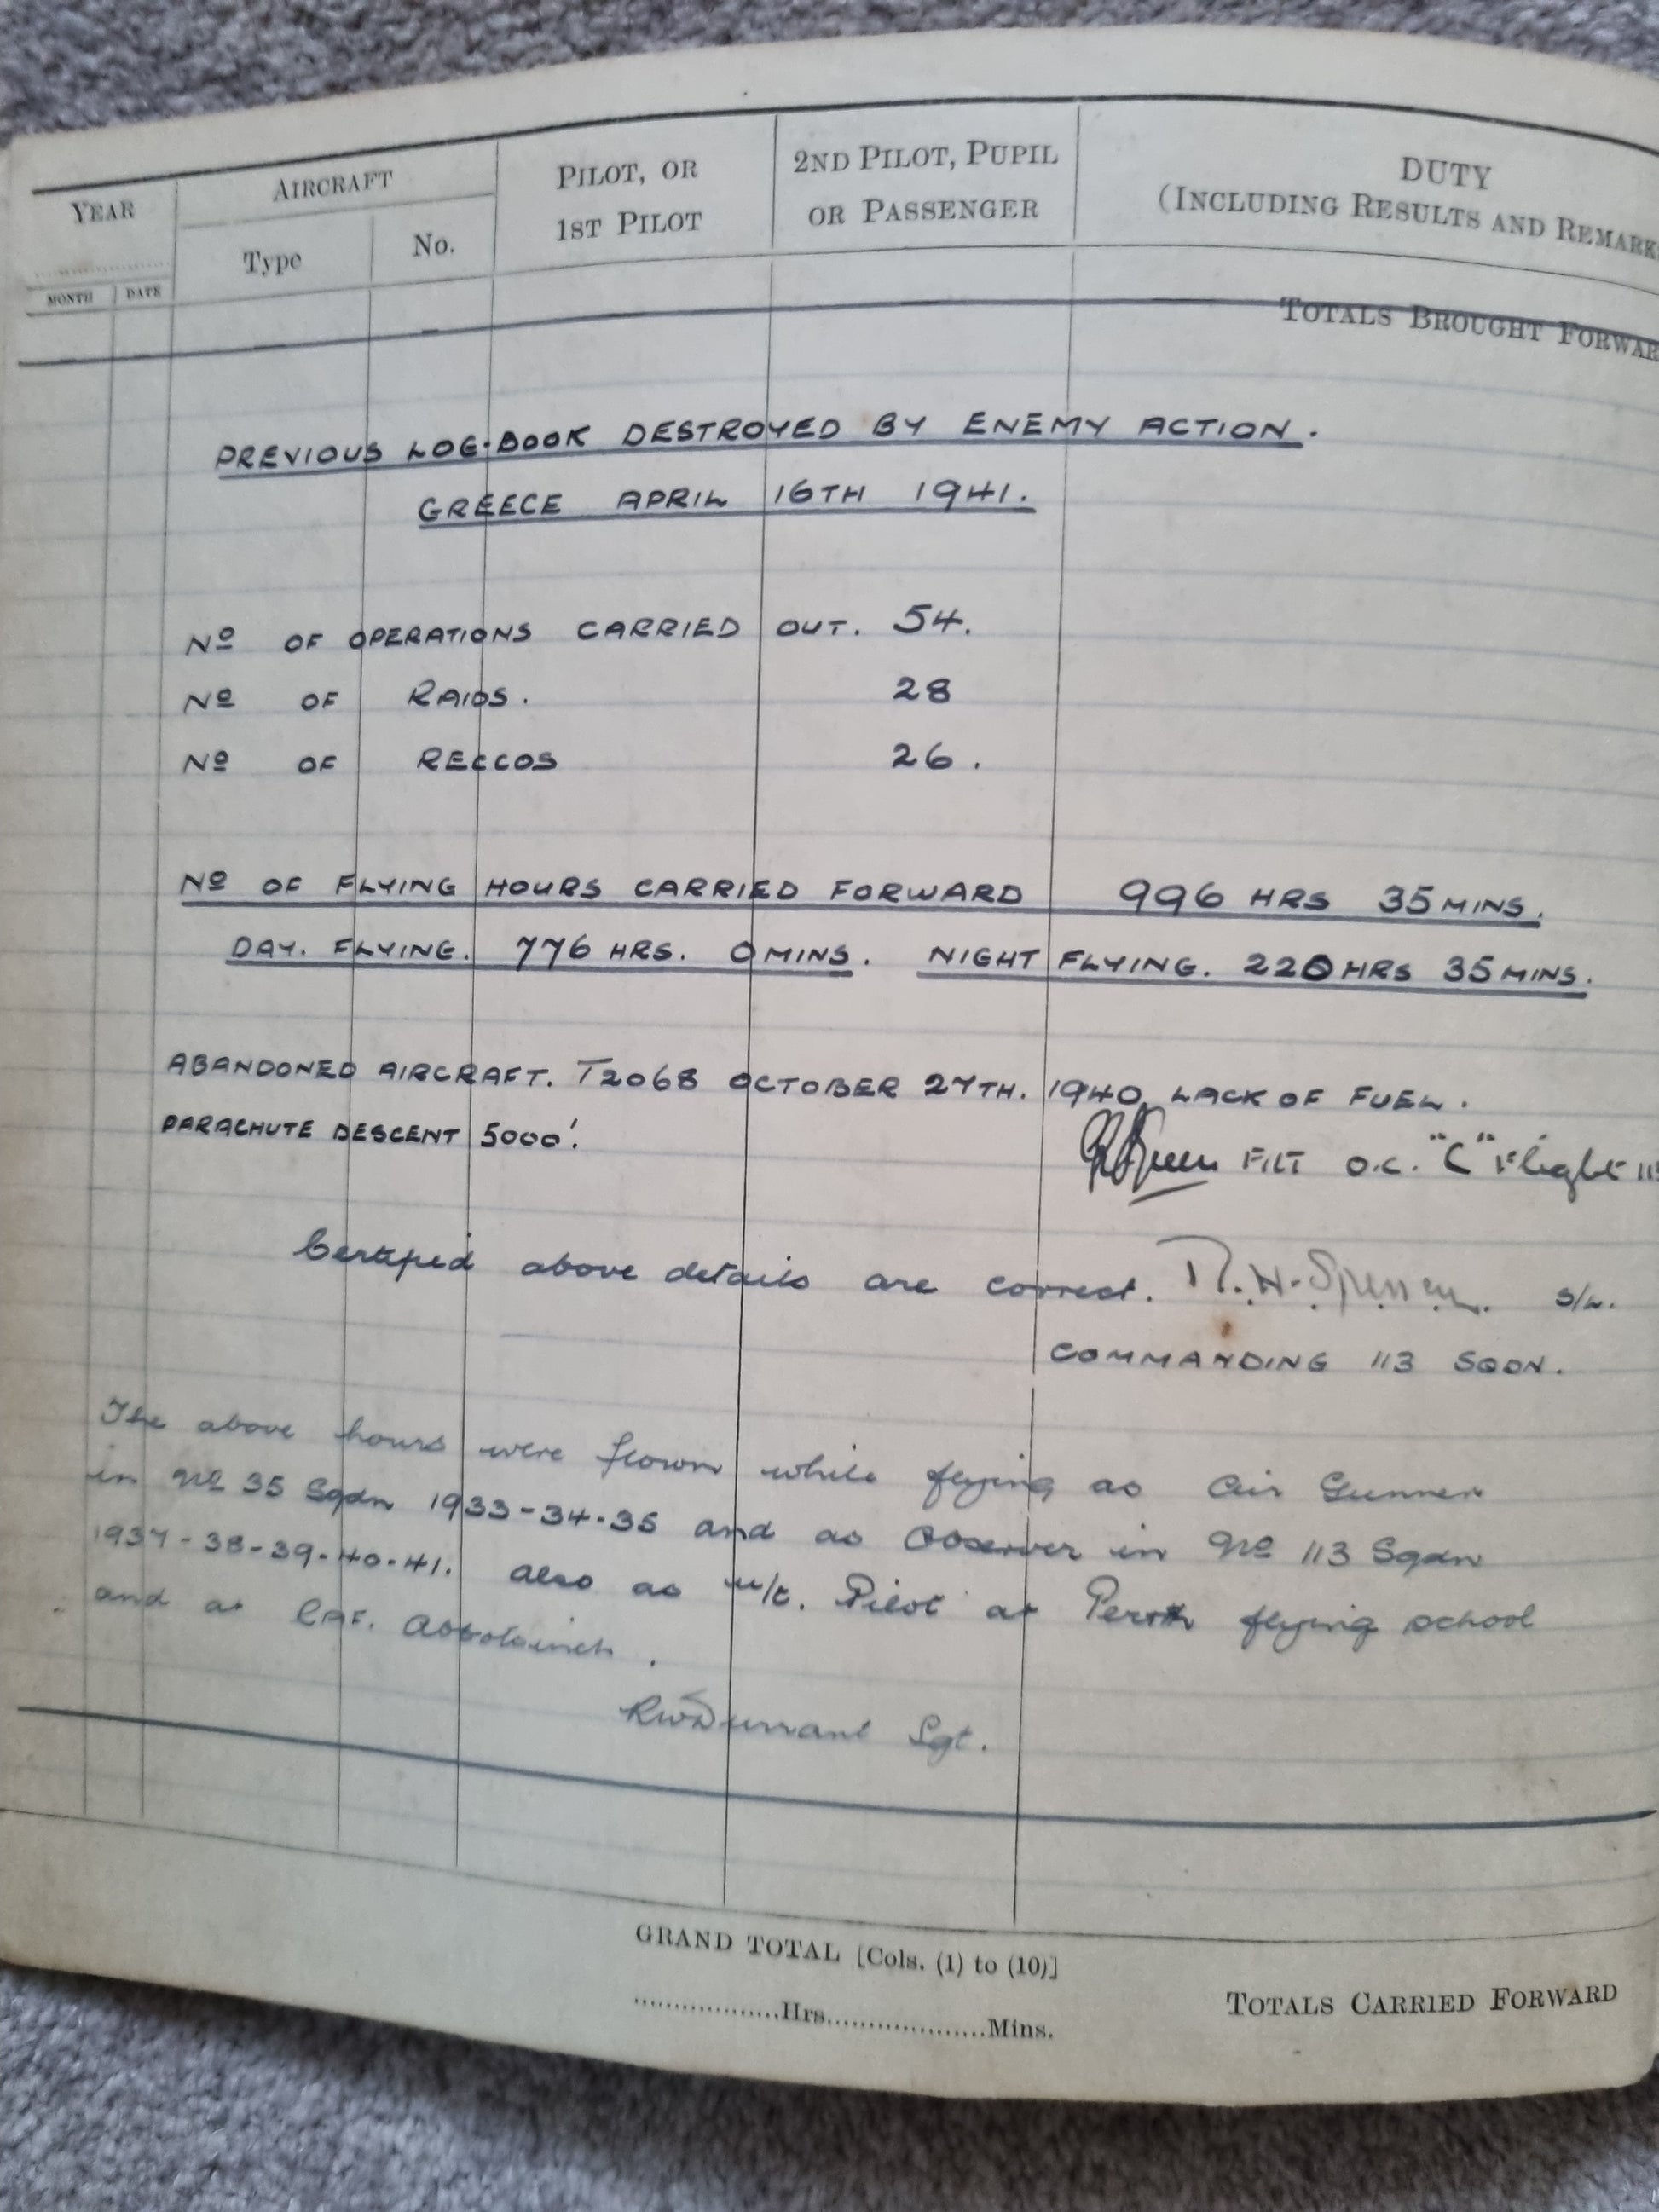 YEAR
AIRCRAFT
PILOT, OR
1ST PILOT
2ND PILOT, PUPIL
OR PASSENGER
DUTY
(INCLUDING RESULTS AND REMARK
Type
No.
MONTH DATE
TOTALS BROUGHT FORWAR
PREVIOUS LOG-BOOK DESTROYED BY ENEMY ACTION.
GREECE APRIL 16TH 1941.
Nº OF OPERATIONS CARRIED OUT. 54.
Nº OF RAIDS. 28
Nº OF RECCOS 26.
Nº OF FLYING HOURS CARRIED FORWARD 996 HRS 35 MINS.
DAY. FLYING. 776 HRS. 0 MINS. NIGHT FLYING. 220 HRS 35 MINS.
ABANDONED AIRCRAFT. T2068 OCTOBER 27TH. 1940 LACK OF FUEL.
PARACHUTE DESCENT 5000'.
F/LT O.C. "C" Flight 11
Certified above details are correct. R.H. Spencer. S/L.
COMMANDING 113 SQDN.
The above hours were flown while flying as Air Gunner
in Nº 35 Sqdn 1933-34-35 and as Observer in Nº 113 Sqdn
1937-38-39-40-41. also as u/t. Pilot at Perth flying school
and at RAF. Abbotsinch.
RWDurrant Sgt.
GRAND TOTAL [Cols. (1) to (10)]
..................Hrs....................Mins.
TOTALS CARRIED FORWARD